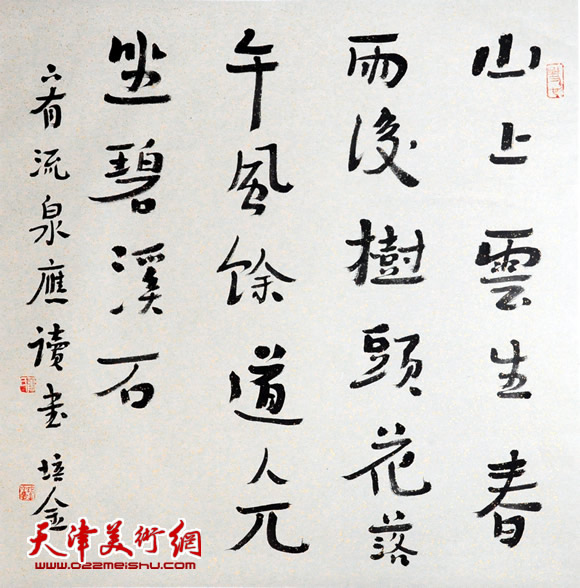 山上雲生春
雨後樹頭花落
午風餘道人兀
坐碧溪石
下有流泉應讀書 培金
天津美術網
www.022meishu.com